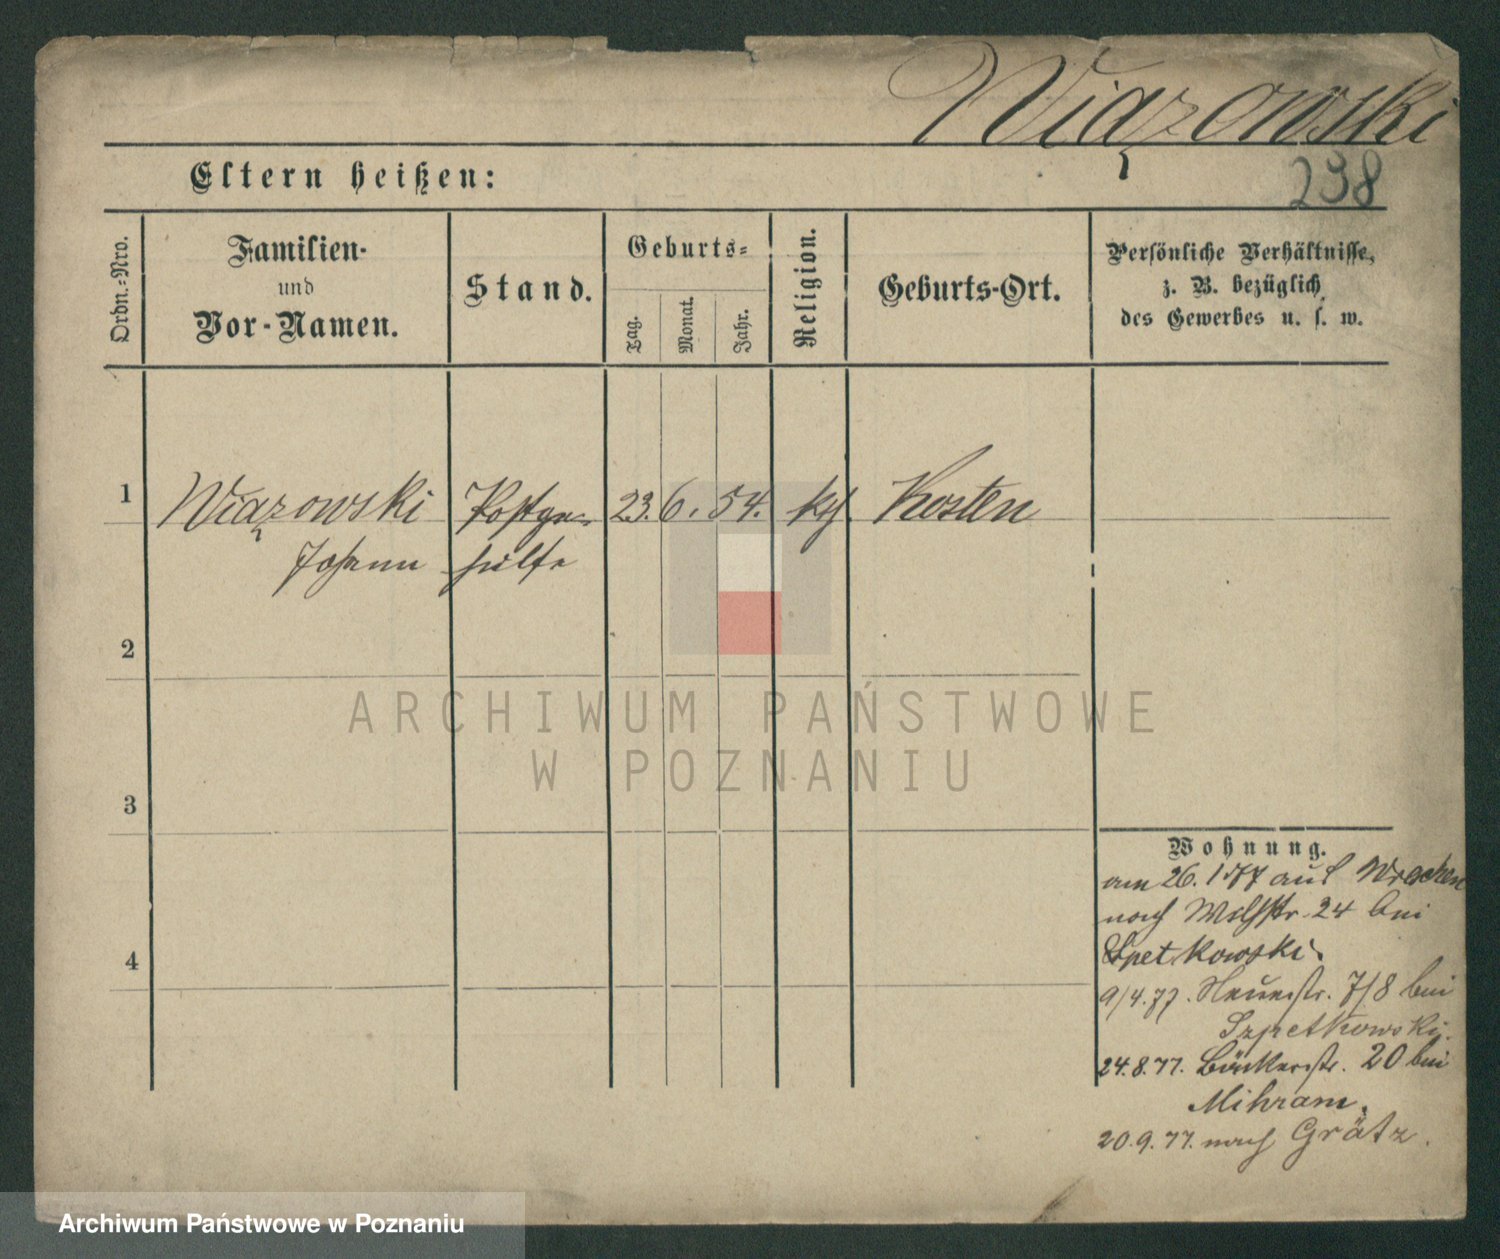 Wiązowski
238
Eltern heißen:
Ordn.-Nro.
Familien-
und
Vor-Namen.
Stand.
Geburts-
Tag.
Monat.
Jahr.
Religion.
Geburts-Ort.
Persönliche Verhältnisse,
z. B. bezüglich
des Gewerbes u. s. w.
1
Wiązowski
Johann
Postge-
hülfe
23. 6. 54.
kth.
Kosten
2
3
4
Wohnung.
am 26. 1 77 aus Wreschen
nach 24 bei
Szpetkowski.
9/4.77. Neuestr. 7/8 bei
Szpetkowski.
24.8.77. Bäckerstr. 20 bei
Mihram.
20.9.77. nach Grätz.
ARCHIWUM PAŃSTWOWE
W POZNANIU
Archiwum Państwowe w Poznaniu